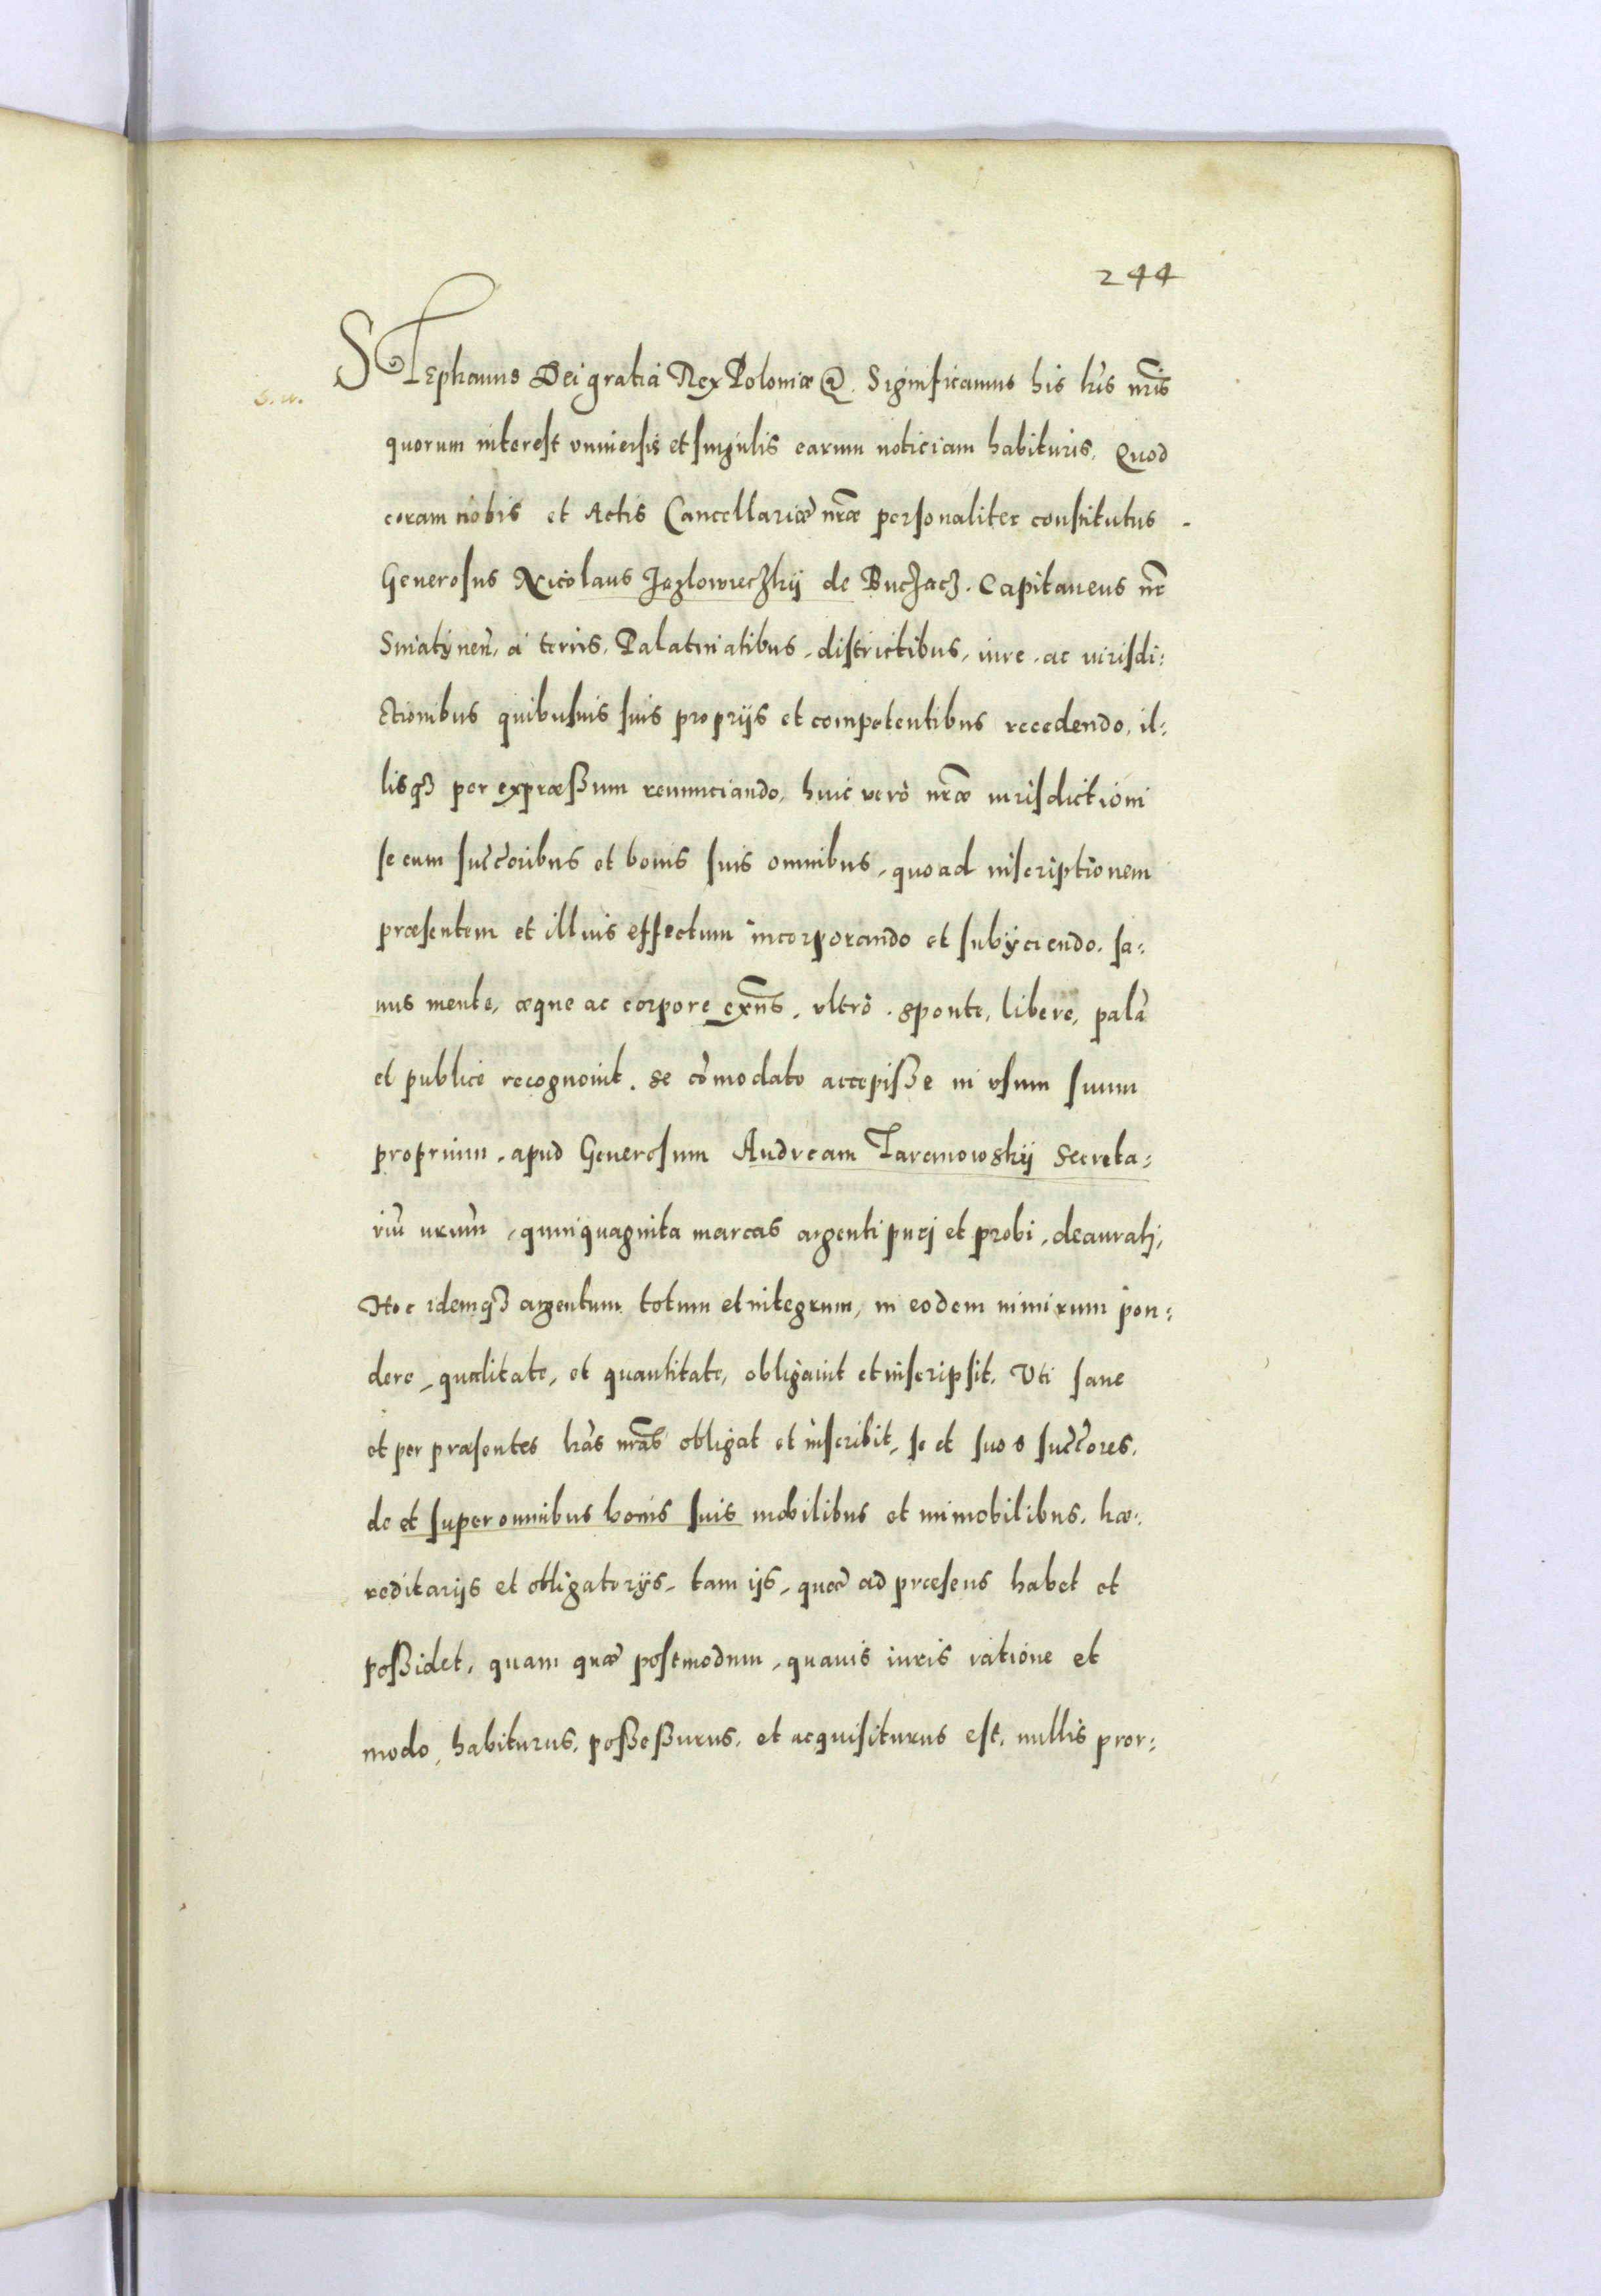 244
STephanus Dei gratia Rex Poloniæ &. Significamus his lr̃is nr̃is
s. u.
quorum interest vniuersis et singulis earum noticiam habituris, Quod
coram nobis et Actis Cancellariæ nr̃æ personaliter constitutus
Generosus Nicolaus Jazlowieczkij de Buczacz. Capitaneus nr̃
Sniatynen̄, à terris, Palatinatibus, districtibus, iure, ac iurisdi:
ctionibus quibusuis suis proprijs et competentibus recedendo, il:
lisqȝ per expræßum renunciando, huic verò nr̃æ iurisdictioni
se cum succ̃oribus et bonis suis omnibus, quoad inscriptionem
præsentem et illius effectum incorporando et subÿciendo, sa:
nus mente, æque ac corpore exñs, vltrò, sponte, libere, palā
et publice recognouit. se cōmodato accepiße in vsum suum
proprium, apud Generosum Andream Taranowskij Secreta:
riū nr̃um, quinquaginta marcas argenti puri et probi, deaurati,
Hoc idemqȝ argentum totum et integrum, in eodem nimirum pon:
dere, qualitate, et quantitate, obligauit et inscripsit, Vti sane
et per præsentes lr̃as nr̃as obligat et inscribit, se et suos succ̃ores,
de et super omnibus bonis suis mobilibus et immobilibus, hæ:
reditarijs et obligatorijs, tam ijs, quæ ad præsens habet et
poßidet, quam quæ postmodum, quauis iuris ratione et
modo, habiturus, poßeßurus, et acquisiturus est, nullis pror: